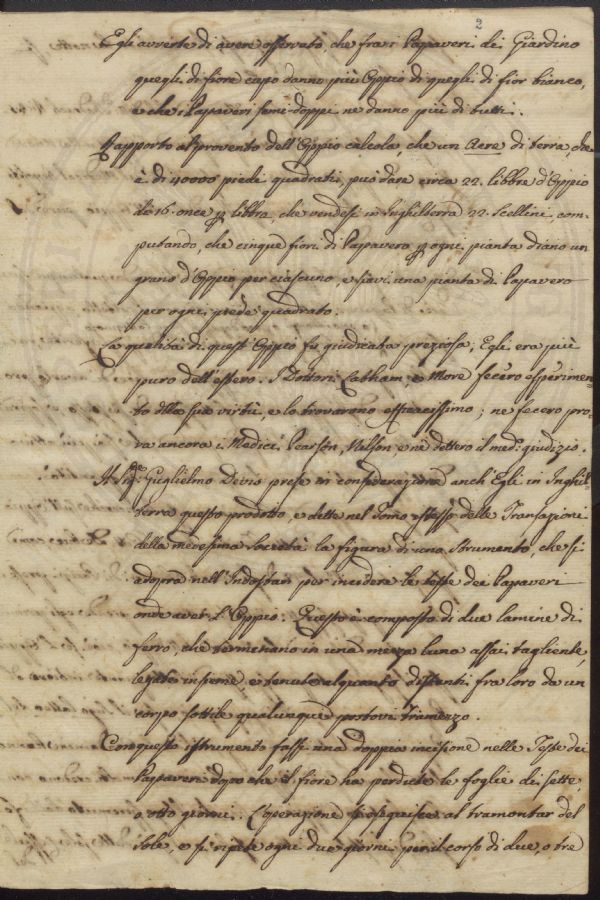 2
Egli avverte di avere osservato, che fra i Papaveri dei Giardino
quegli di fiore cupo danno più Oppio di quegli di fior bianco,
e che i Papaveri semidoppi ne danno più di tutti.
Rapporto al provento dell'Oppio calcola, che un Acre di terra, che
è di 40000 piedi quadrati, può dare circa 22. libbre d'Oppio
di 16. once p libbra, che vendesi in Inghilterra 22. Scellini com-
putando, che cinque fiori di Papavero p ogni pianta diano un
grano d'Oppio per ciascuno, e siavi una pianta di Papavero
per ogni piede quadrato.
La qualità di quest'Oppio fu giudicata preziosa; Egli era più
puro dell'estero. I Dottori Latham, e More fecero esperimen-
to della sua virtù, e lo trovarono efficacissimo; ne fecero pro-
va ancora i Medici Pearson, Nilson e ne dettero il med: giudizio.
Il Sig:re Guglielmo Devis prese in considerazione anch'Egli in Inghil-
terra questo prodotto, e dette nel Tomo stesso delle Transazioni
della medesima Società la figura di uno strumento, che si
adopra nell'Indostan per incidere le teste dei Papaveri
onde aver l'Oppio. Questo è composto di due lamine di
ferro, che terminano in una mezza luna assai tagliente,
legate insieme, e tenute alquanto distanti fra loro da un
corpo sottile qualunque postovi tramezzo.
Con questo istrumento fassi una doppia incisione nelle Teste dei
Papaveri dopo che il fiore ha perdute le foglie di sette,
o otto giorni. L'operazione si eseguisce al tramontar del
Sole, e si ripete ogni due giorni per il corso di due, o tre